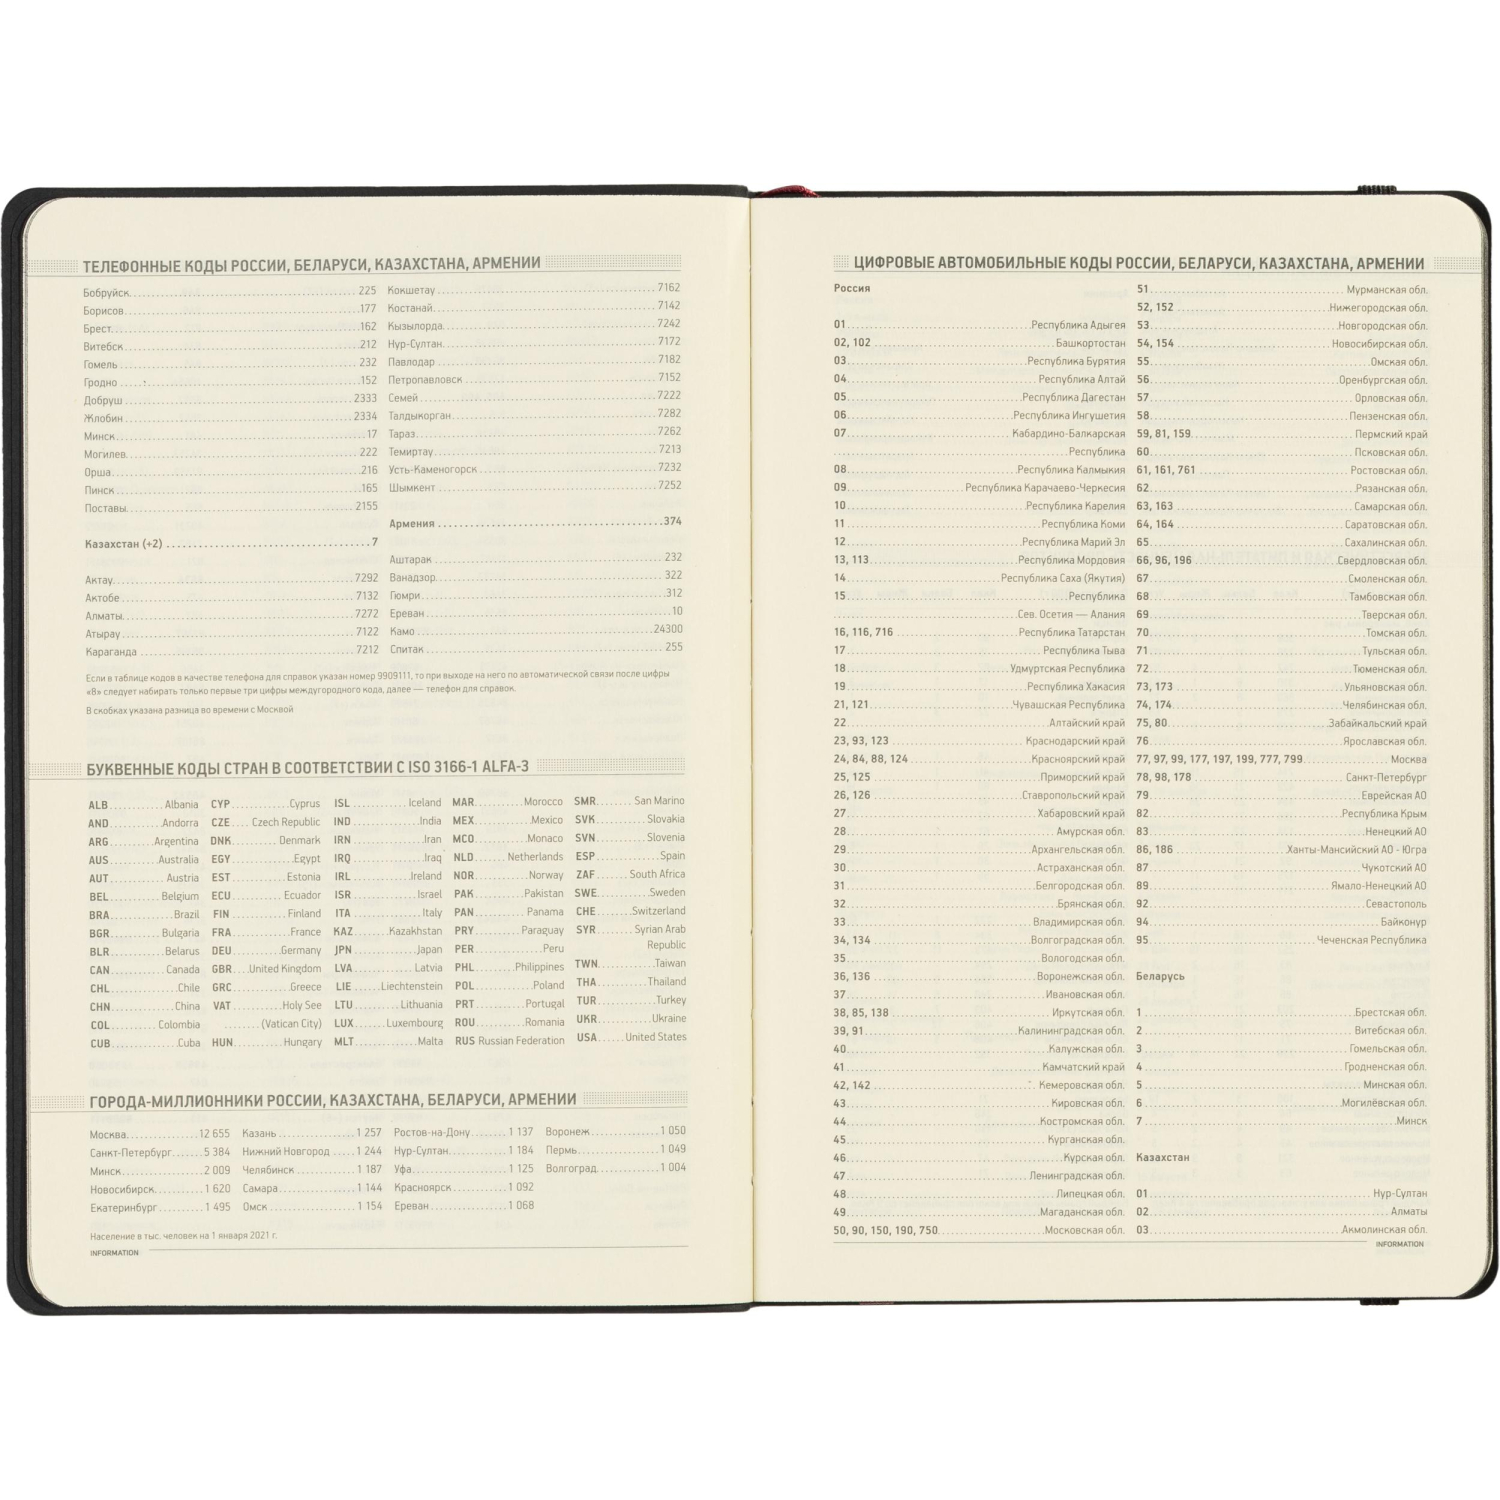 ТЕЛЕФОННЫЕ КОДЫ РОССИИ, БЕЛАРУСИ, КАЗАХСТАНА, АРМЕНИИ
Бобруйск 225
Борисов 177
Брест 162
Витебск 212
Гомель 232
Гродно 152
Добруш 2333
Жлобин 2334
Минск 17
Могилев 222
Орша 216
Пинск 165
Поставы 2155
Казахстан (+2) 7
Актау 7292
Актобе 7132
Алматы 7272
Атырау 7122
Караганда 7212
Кокшетау 7162
Костанай 7142
Кызылорда 7242
Нур-Султан 7172
Павлодар 7182
Петропавловск 7152
Семей 7222
Талдыкорган 7282
Тараз 7262
Темиртау 7213
Усть-Каменогорск 7232
Шымкент 7252
Армения 374
Аштарак 232
Ванадзор 322
Гюмри 312
Ереван 10
Камо 24300
Спитак 255
Если в таблице кодов в качестве телефона для справок указан номер 9909111, то при выходе на него по автоматической связи после цифры
«8» следует набирать только первые три цифры междугородного кода, далее — телефон для справок.
В скобках указана разница во времени с Москвой
БУКВЕННЫЕ КОДЫ СТРАН В СООТВЕТСТВИИ С ISO 3166-1 ALFA-3
ALB Albania
AND Andorra
ARG Argentina
AUS Australia
AUT Austria
BEL Belgium
BRA Brazil
BGR Bulgaria
BLR Belarus
CAN Canada
CHL Chile
CHN China
COL Colombia
CUB Cuba
CYP Cyprus
CZE Czech Republic
DNK Denmark
EGY Egypt
EST Estonia
ECU Ecuador
FIN Finland
FRA France
DEU Germany
GBR United Kingdom
GRC Greece
VAT Holy See
(Vatican City)
HUN Hungary
ISL Iceland
IND India
IRN Iran
IRQ Iraq
IRL Ireland
ISR Israel
ITA Italy
KAZ Kazakhstan
JPN Japan
LVA Latvia
LIE Liechtenstein
LTU Lithuania
LUX Luxembourg
MLT Malta
MAR Morocco
MEX Mexico
MCO Monaco
NLD Netherlands
NOR Norway
PAK Pakistan
PAN Panama
PRY Paraguay
PER Peru
PHL Philippines
POL Poland
PRT Portugal
ROU Romania
RUS Russian Federation
SMR San Marino
SVK Slovakia
SVN Slovenia
ESP Spain
ZAF South Africa
SWE Sweden
CHE Switzerland
SYR Syrian Arab
Republic
TWN Taiwan
THA Thailand
TUR Turkey
UKR Ukraine
USA United States
ГОРОДА-МИЛЛИОННИКИ РОССИИ, КАЗАХСТАНА, БЕЛАРУСИ, АРМЕНИИ
Москва 12 655
Санкт-Петербург 5 384
Минск 2 009
Новосибирск 1 620
Екатеринбург 1 495
Казань 1 257
Нижний Новгород 1 244
Челябинск 1 187
Самара 1 144
Омск 1 154
Ростов-на-Дону 1 137
Нур-Султан 1 184
Уфа 1 125
Красноярск 1 092
Ереван 1 068
Воронеж 1 050
Пермь 1 049
Волгоград 1 004
Население в тыс. человек на 1 января 2021 г.
INFORMATION
ЦИФРОВЫЕ АВТОМОБИЛЬНЫЕ КОДЫ РОССИИ, БЕЛАРУСИ, КАЗАХСТАНА, АРМЕНИИ
Россия
01 Республика Адыгея
02, 102 Башкортостан
03 Республика Бурятия
04 Республика Алтай
05 Республика Дагестан
06 Республика Ингушетия
07 Кабардино-Балкарская
Республика
08 Республика Калмыкия
09 Республика Карачаево-Черкесия
10 Республика Карелия
11 Республика Коми
12 Республика Марий Эл
13, 113 Республика Мордовия
14 Республика Саха (Якутия)
15 Республика
Сев. Осетия — Алания
16, 116, 716 Республика Татарстан
17 Республика Тыва
18 Удмуртская Республика
19 Республика Хакасия
21, 121 Чувашская Республика
22 Алтайский край
23, 93, 123 Краснодарский край
24, 84, 88, 124 Красноярский край
25, 125 Приморский край
26, 126 Ставропольский край
27 Хабаровский край
28 Амурская обл.
29 Архангельская обл.
30 Астраханская обл.
31 Белгородская обл.
32 Брянская обл.
33 Владимирская обл.
34, 134 Волгоградская обл.
35 Вологодская обл.
36, 136 Воронежская обл.
37 Ивановская обл.
38, 85, 138 Иркутская обл.
39, 91 Калининградская обл.
40 Калужская обл.
41 Камчатский край
42, 142 Кемеровская обл.
43 Кировская обл.
44 Костромская обл.
45 Курганская обл.
46 Курская обл.
47 Ленинградская обл.
48 Липецкая обл.
49 Магаданская обл.
50, 90, 150, 190, 750 Московская обл.
51 Мурманская обл.
52, 152 Нижегородская обл.
53 Новгородская обл.
54, 154 Новосибирская обл.
55 Омская обл.
56 Оренбургская обл.
57 Орловская обл.
58 Пензенская обл.
59, 81, 159 Пермский край
60 Псковская обл.
61, 161, 761 Ростовская обл.
62 Рязанская обл.
63, 163 Самарская обл.
64, 164 Саратовская обл.
65 Сахалинская обл.
66, 96, 196 Свердловская обл.
67 Смоленская обл.
68 Тамбовская обл.
69 Тверская обл.
70 Томская обл.
71 Тульская обл.
72 Тюменская обл.
73, 173 Ульяновская обл.
74, 174 Челябинская обл.
75, 80 Забайкальский край
76 Ярославская обл.
77, 97, 99, 177, 197, 199, 777, 799 Москва
78, 98, 178 Санкт-Петербург
79 Еврейская АО
82 Республика Крым
83 Ненецкий АО
86, 186 Ханты-Мансийский АО - Югра
87 Чукотский АО
89 Ямало-Ненецкий АО
92 Севастополь
94 Байконур
95 Чеченская Республика
Беларусь
1 Брестская обл.
2 Витебская обл.
3 Гомельская обл.
4 Гродненская обл.
5 Минская обл.
6 Могилёвская обл.
7 Минск
Казахстан
01 Нур-Султан
02 Алматы
03 Акмолинская обл.
INFORMATION